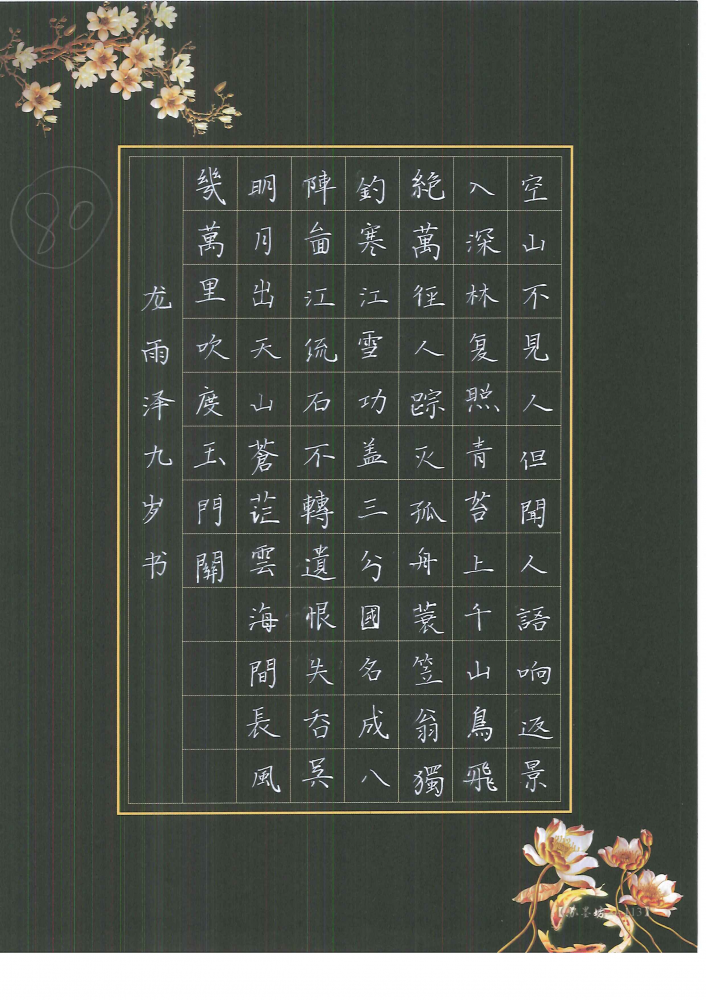 空山不見人但聞人語响返景
入深林复照青苔上千山鳥飛
絶萬徑人踪灭孤舟蓑笠翁獨
釣寒江雪功盖三分國名成八
陣啚江流石不轉遺恨失吞吴
明月出天山蒼茫雲海間長風
幾萬里吹度玉門關
龙雨泽九岁书
80